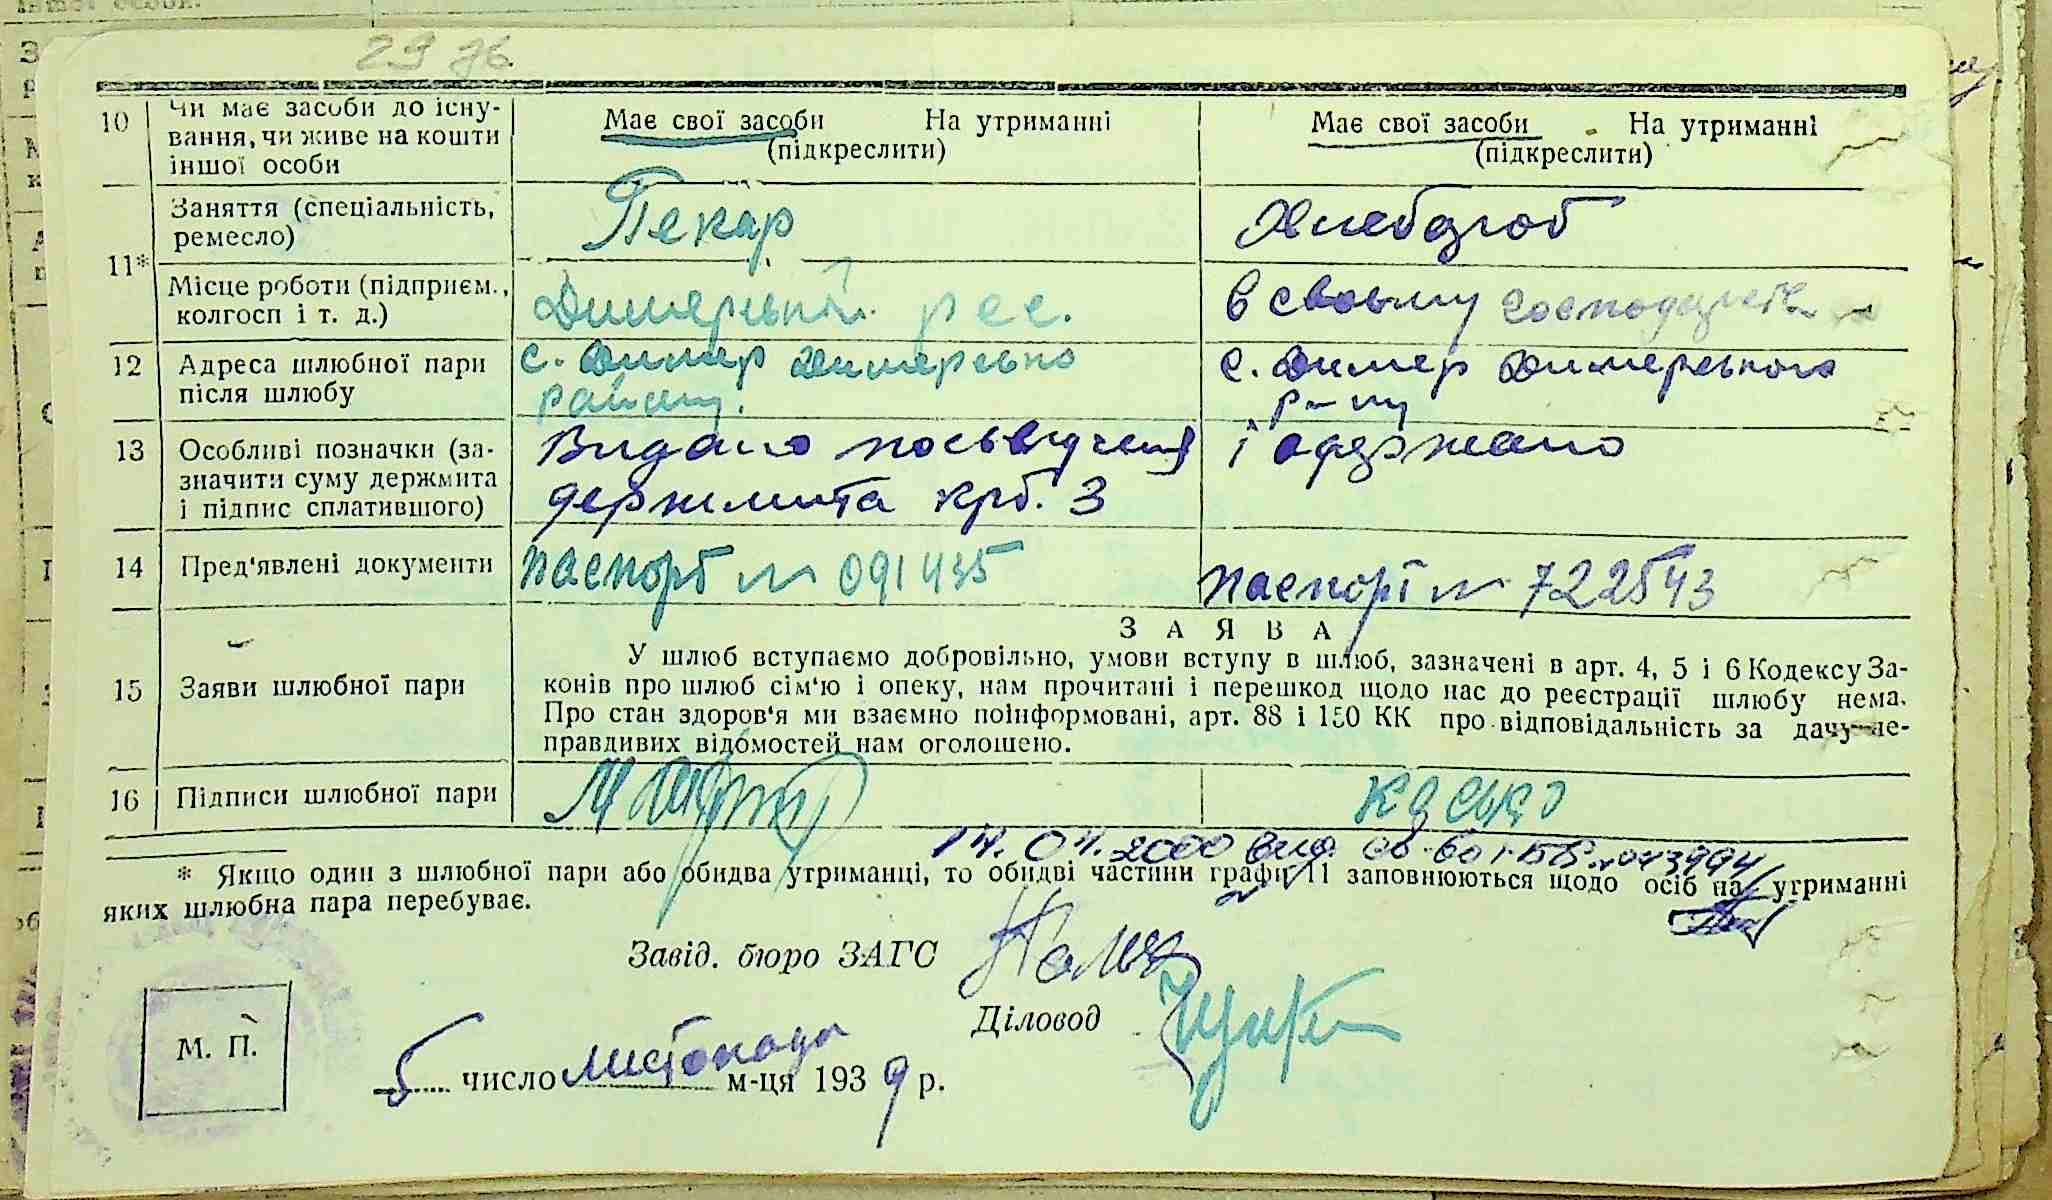 29 зв.
10 Чи має засоби до існу-
вання, чи живе на кошти
іншої особи
Має свої засоби На утриманні
(підкреслити)
Має свої засоби На утриманні
(підкреслити)
11*
Заняття (спеціальність,
ремесло)
Пекар
Хлебороб
Місце роботи (підприєм.,
колгосп і т. д.)
Димерській
в своьму господарстві
12 Адреса шлюбної пари
після шлюбу
с. Димер Димерсько
району.
с. Димер Димерського
р-ну
13 Особливі позначки (за-
значити суму держмита
і підпис сплатившого)
Видано посьвідченя
держмита крб. 3
і одержано
14 Пред'явлені документи
паспорт № 091435
паспорт № 722543
15 Заяви шлюбної пари
ЗАЯВА
У шлюб вступаємо добровільно, умови вступу в шлюб, зазначені в арт. 4, 5 і 6 Кодексу За-
конів про шлюб сім'ю і опеку, нам прочитані і перешкод щодо нас до реєстрації шлюбу нема.
Про стан здоров'я ми взаємно поінформовані, арт. 88 і 150 КК про відповідальність за дачу не-
правдивих відомостей нам оголошено.
16 Підписи шлюбної пари
14.04.2000 вид.
* Якщо один з шлюбної пари або обидва утриманці, то обидві частини графи 11 заповнюються щодо осіб на утриманні
яких шлюбна пара перебуває.
Завід. бюро ЗАГС
Діловод
М. П.
5 число листопада м-ця 1939 р.